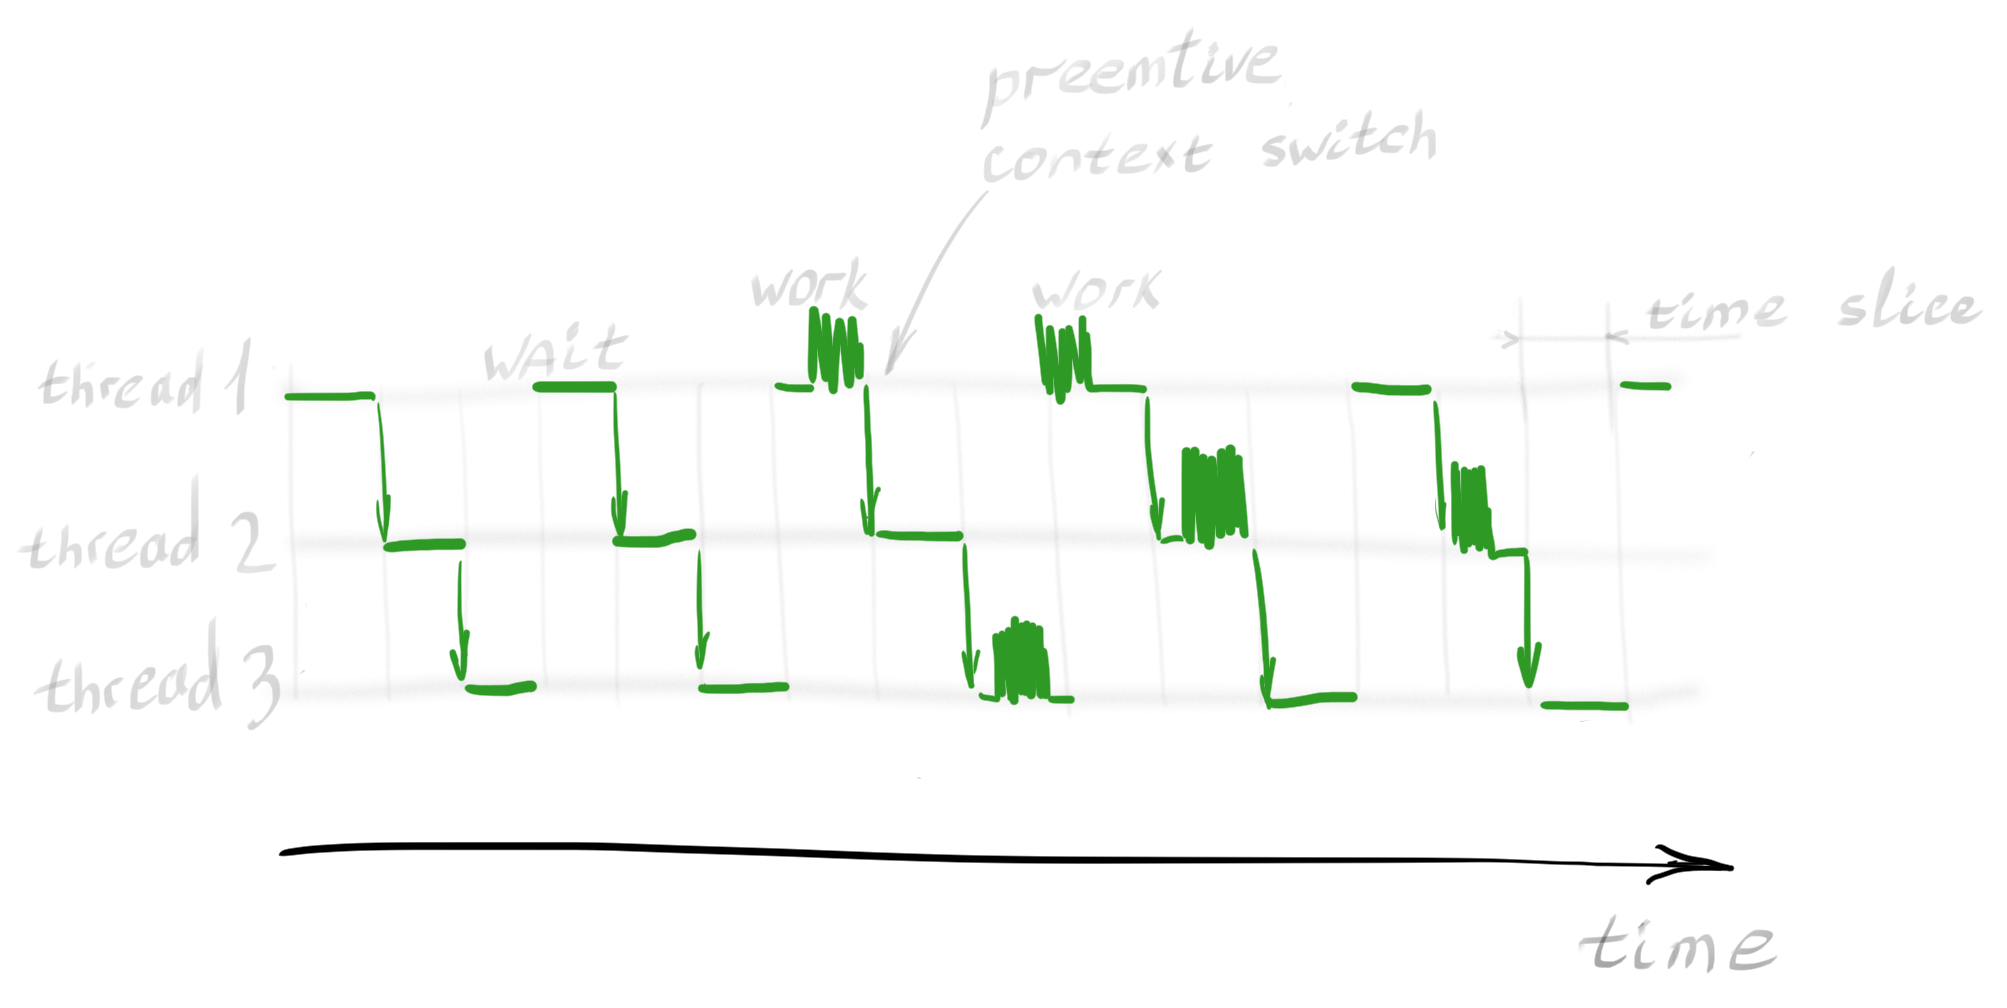 preemtive
context switch
work
work
time slice
wait
thread 1
thread 2
thread 3
time